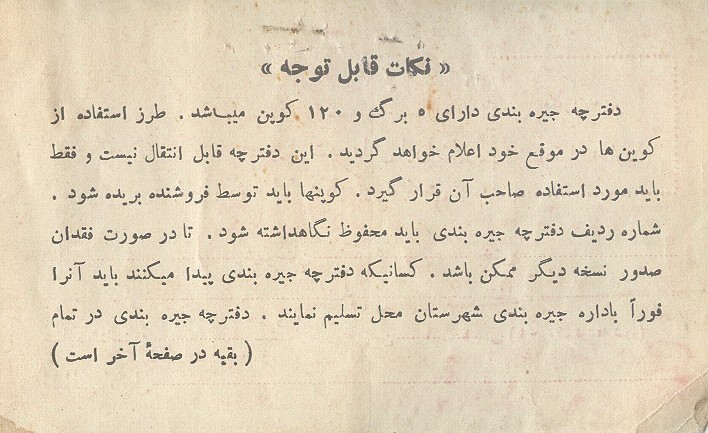 « نکات قابل توجه »
دفترچه جیره بندی دارای ۵ برگ و ۱۲۰ کوپن میباشد . طرز استفاده از
کوپن ها در موقع خود اعلام خواهد گردید . این دفترچه قابل انتقال نیست و فقط
باید مورد استفاده صاحب آن قرار گیرد . کوپنها باید توسط فروشنده بریده شود .
شماره ردیف دفترچه جیره بندی باید محفوظ نگاهداشته شود . تا در صورت فقدان
صدور نسخه دیگر ممکن باشد . کسانیکه دفترچه جیره بندی پیدا میکنند باید آنرا
فوراً باداره جیره بندی شهرستان محل تسلیم نمایند . دفترچه جیره بندی در تمام
( بقیه در صفحهٔ آخر است )